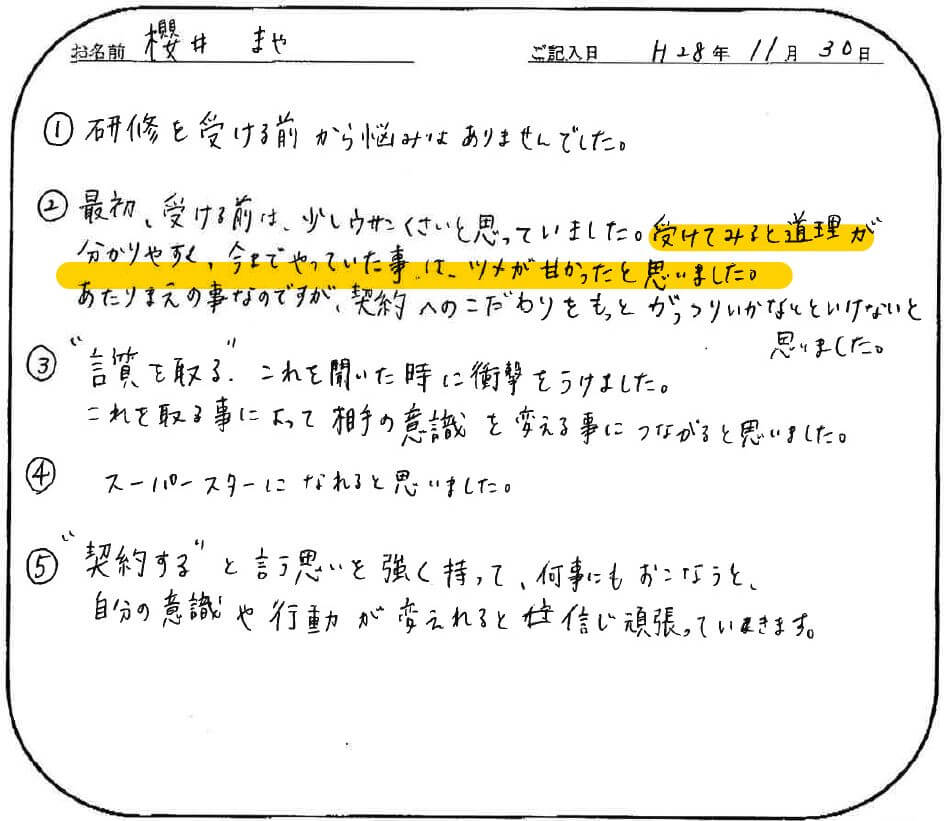 お名前 櫻井 まや ご記入日 H28年 11月 30日
① 研修を受ける前から悩みはありませんでした。
② 最初、受ける前は、少しウサンくさいと思っていました。受けてみると道理が
分かりやすく、今までやっていた事は、ツメが甘かったと思いました。
あたりまえの事なのですが、契約へのこだわりをもっとがっつりいかないといけないと
思いました。
③ "言質を取る"これを聞いた時に衝撃をうけました。
これを取る事によって相手の意識を変える事につながると思いました。
④ スーパースターになれると思いました。
⑤ "契約する"と言う思いを強く持って、何事にもおこなうと、
自分の意識や行動が変えれると信じ頑張っていきます。